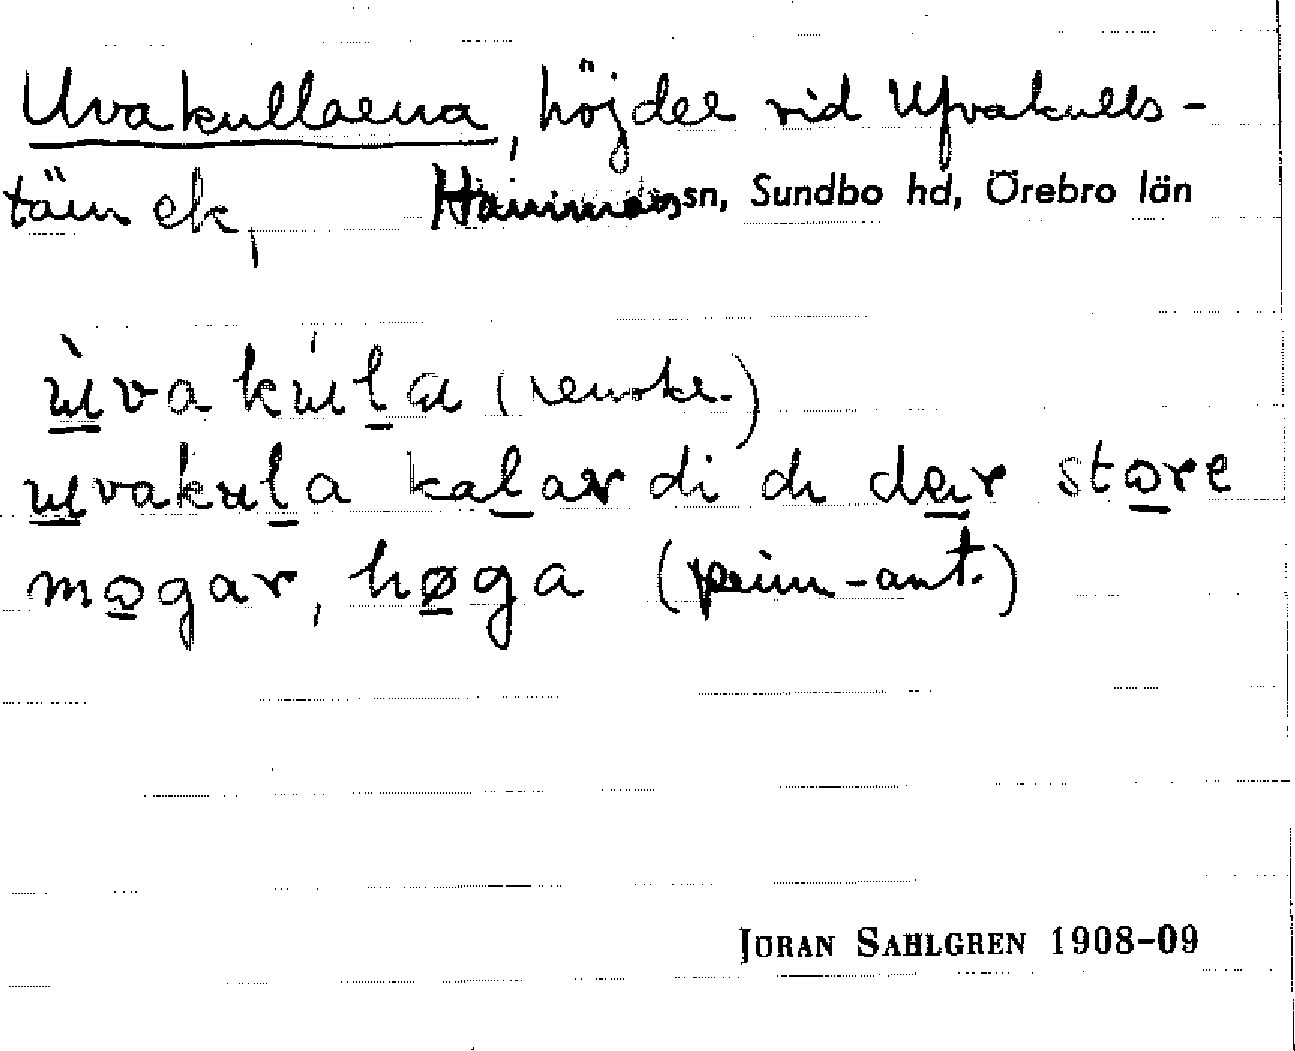 Uvakullarna, höjder vid Ufvakulls-
tärn ek, Hammars sn, Sundbo hd, Örebro län
ùvakúla (renskr.)
uvakula kalar di di dær store
mogar, høga (prim-ant.)
JÖRAN SAHLGREN 1908-09